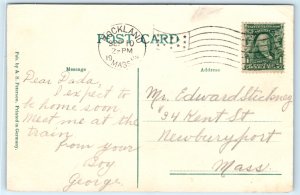 ROCKLAND
10
2-PM
MASS.
POST CARD
Message
Address
Pub. by A. S. Peterson, Printed in Germany.
Dear Dada,
I expect to
be home soon
Meet me at the
train
From your
Boy
George.
Mr. Edward Stickney
34 Kent St
Newburyport
Mass.